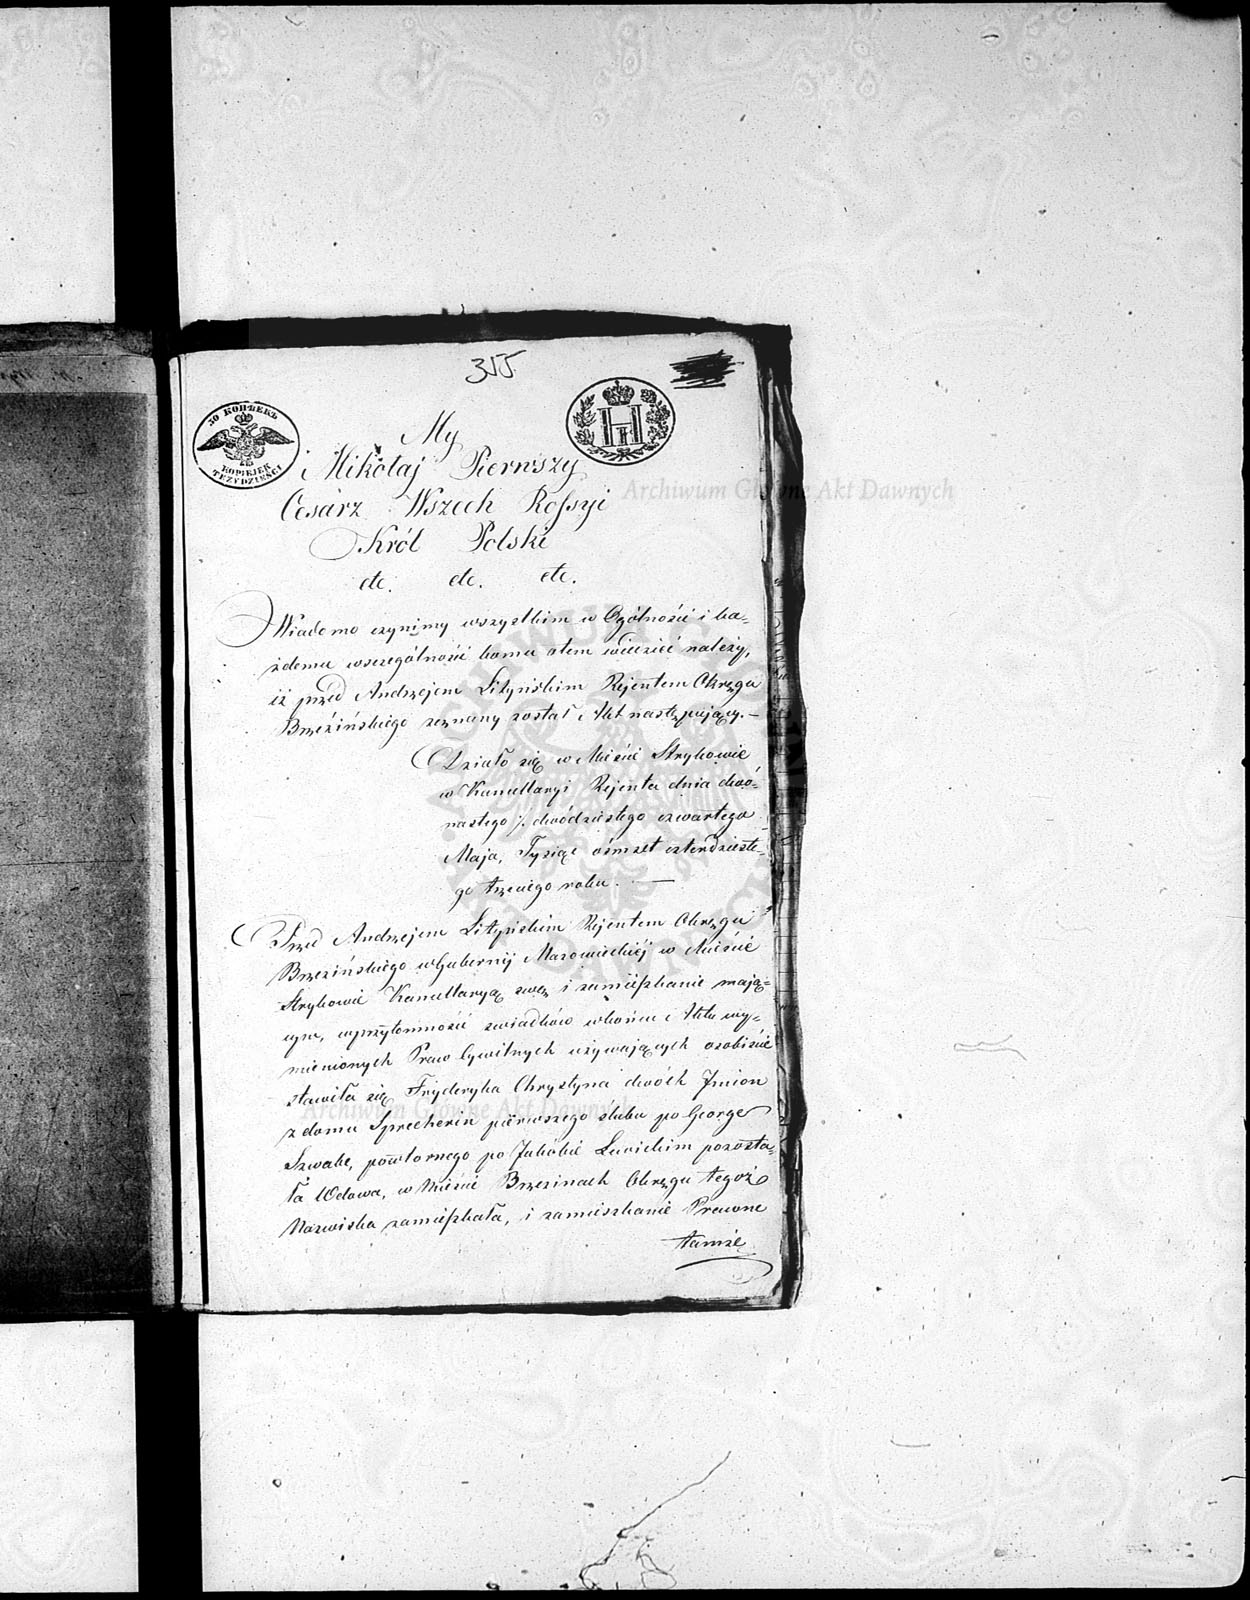 355
30 КОПѢЕКЪ
KOPIEJEK
TRZYDZIEŚCI
My
Mikołaj Pierwszy
Cesarz Wszech Rossyi
Król Polski
etc. etc. etc.
Wiadomo czynimy wszystkim w Ogólności i ka-
żdemu wszczególności komu otem wiedzieć należy,
iż przed Andrzejem Lityńskim Rejentem Okręgu
Brzezińskiego zeznany został Akt następujący.—
Działo się w Mieście Strykowie
w Kancellaryi Rejenta dnia dwó-
nastego /. dwódziestego czwartego
Maja, Tysiąc ośmset czterdzieste-
go trzeciego roku. —
Przed Andrzejem Lityńskim Rejentem Okręgu
Brzezińskiego w Gubernij Mazowieckiéj w Mieście
Strykowie Kancellaryą swą i zamięszkanie mają-
cym, wprzytomności świadków wkońcu Aktu wy-
mienionych Praw Cywilnych używających osobiście
stawiła się Fryderyka Chrystyna dwóch Imion
z domu Sprecherin pierwszego ślubu po George
Szwabe, powtornego po Jakóbie Lewickim pozosta-
ła Wdowa, w Mieście Brzezinach Okręgu tegoż
Nazwiska zamięszkała, i zamieszkanie Prawne
tamże
Archiwum Główne Akt Dawnych
Archiwum Główne Akt Dawnych